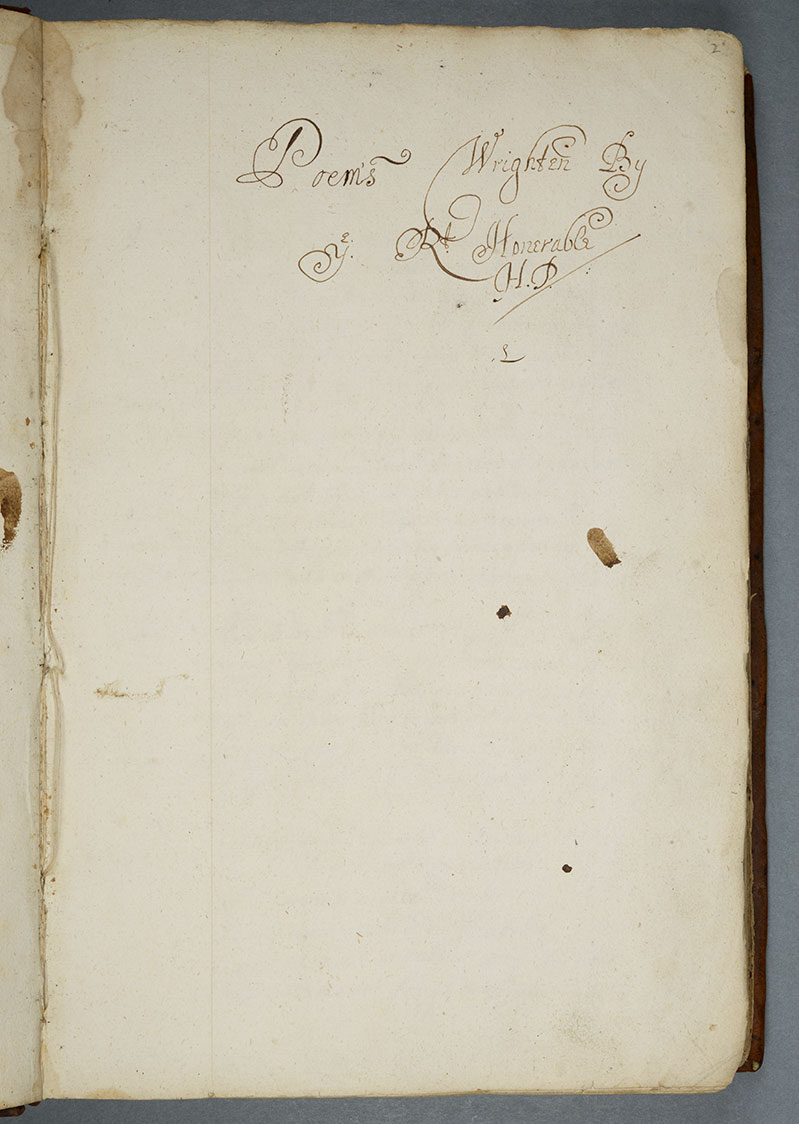 2
Poem's Wrighten By
yᵉ. Rᵗ Honerable
H.P.